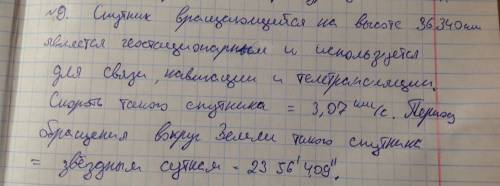 №9. Спутник вращающийся на высоте 36340 км
является геостационарным и используется
для связи, навигации и телетрансляции.
Скорость такого спутника = 3,07 км/с. Период
обращения вокруг Земли такого спутника
= звёздным суткам - 23 56' 4,09''.